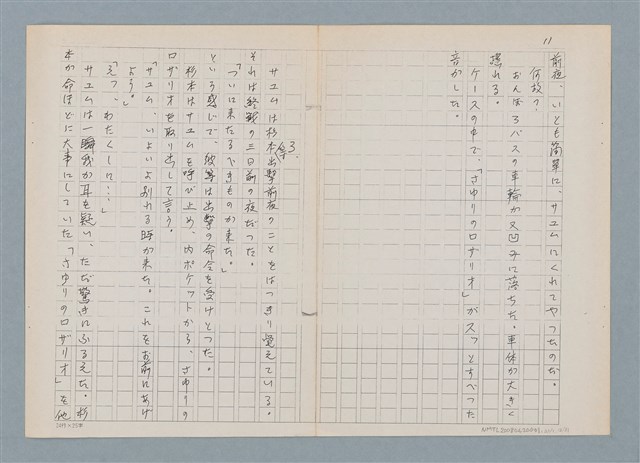 11
前夜、いとも簡単に、サユムにくれてやったのだ。
何故？
おんぼろバスの車輪が又凹みに落ちた。車体が大きく
揺れる。
ケースの中で、「さゆりのロザリオ」がスッとすべった
音がした。
サユムは杉本出撃前夜のことをはっきり覚えている。
それは終戦の三日前の夜だった。
「ついに来たるべきものが来た。」
という感じで、彼等は出撃の命令を受けとった。
杉本はサユムを呼び止め、内ポケットから、さゆりの
ロザリオを取り出して言う。
「サユム、いよいよ別れる時が来た。これをお前にあげ
よう。」
「えっ、わたくしに…」
サユムは一瞬我が耳を疑い、ただ驚きにふるえた。杉
本が命ほどに大事にしていた「さゆりのロザリオ」を他